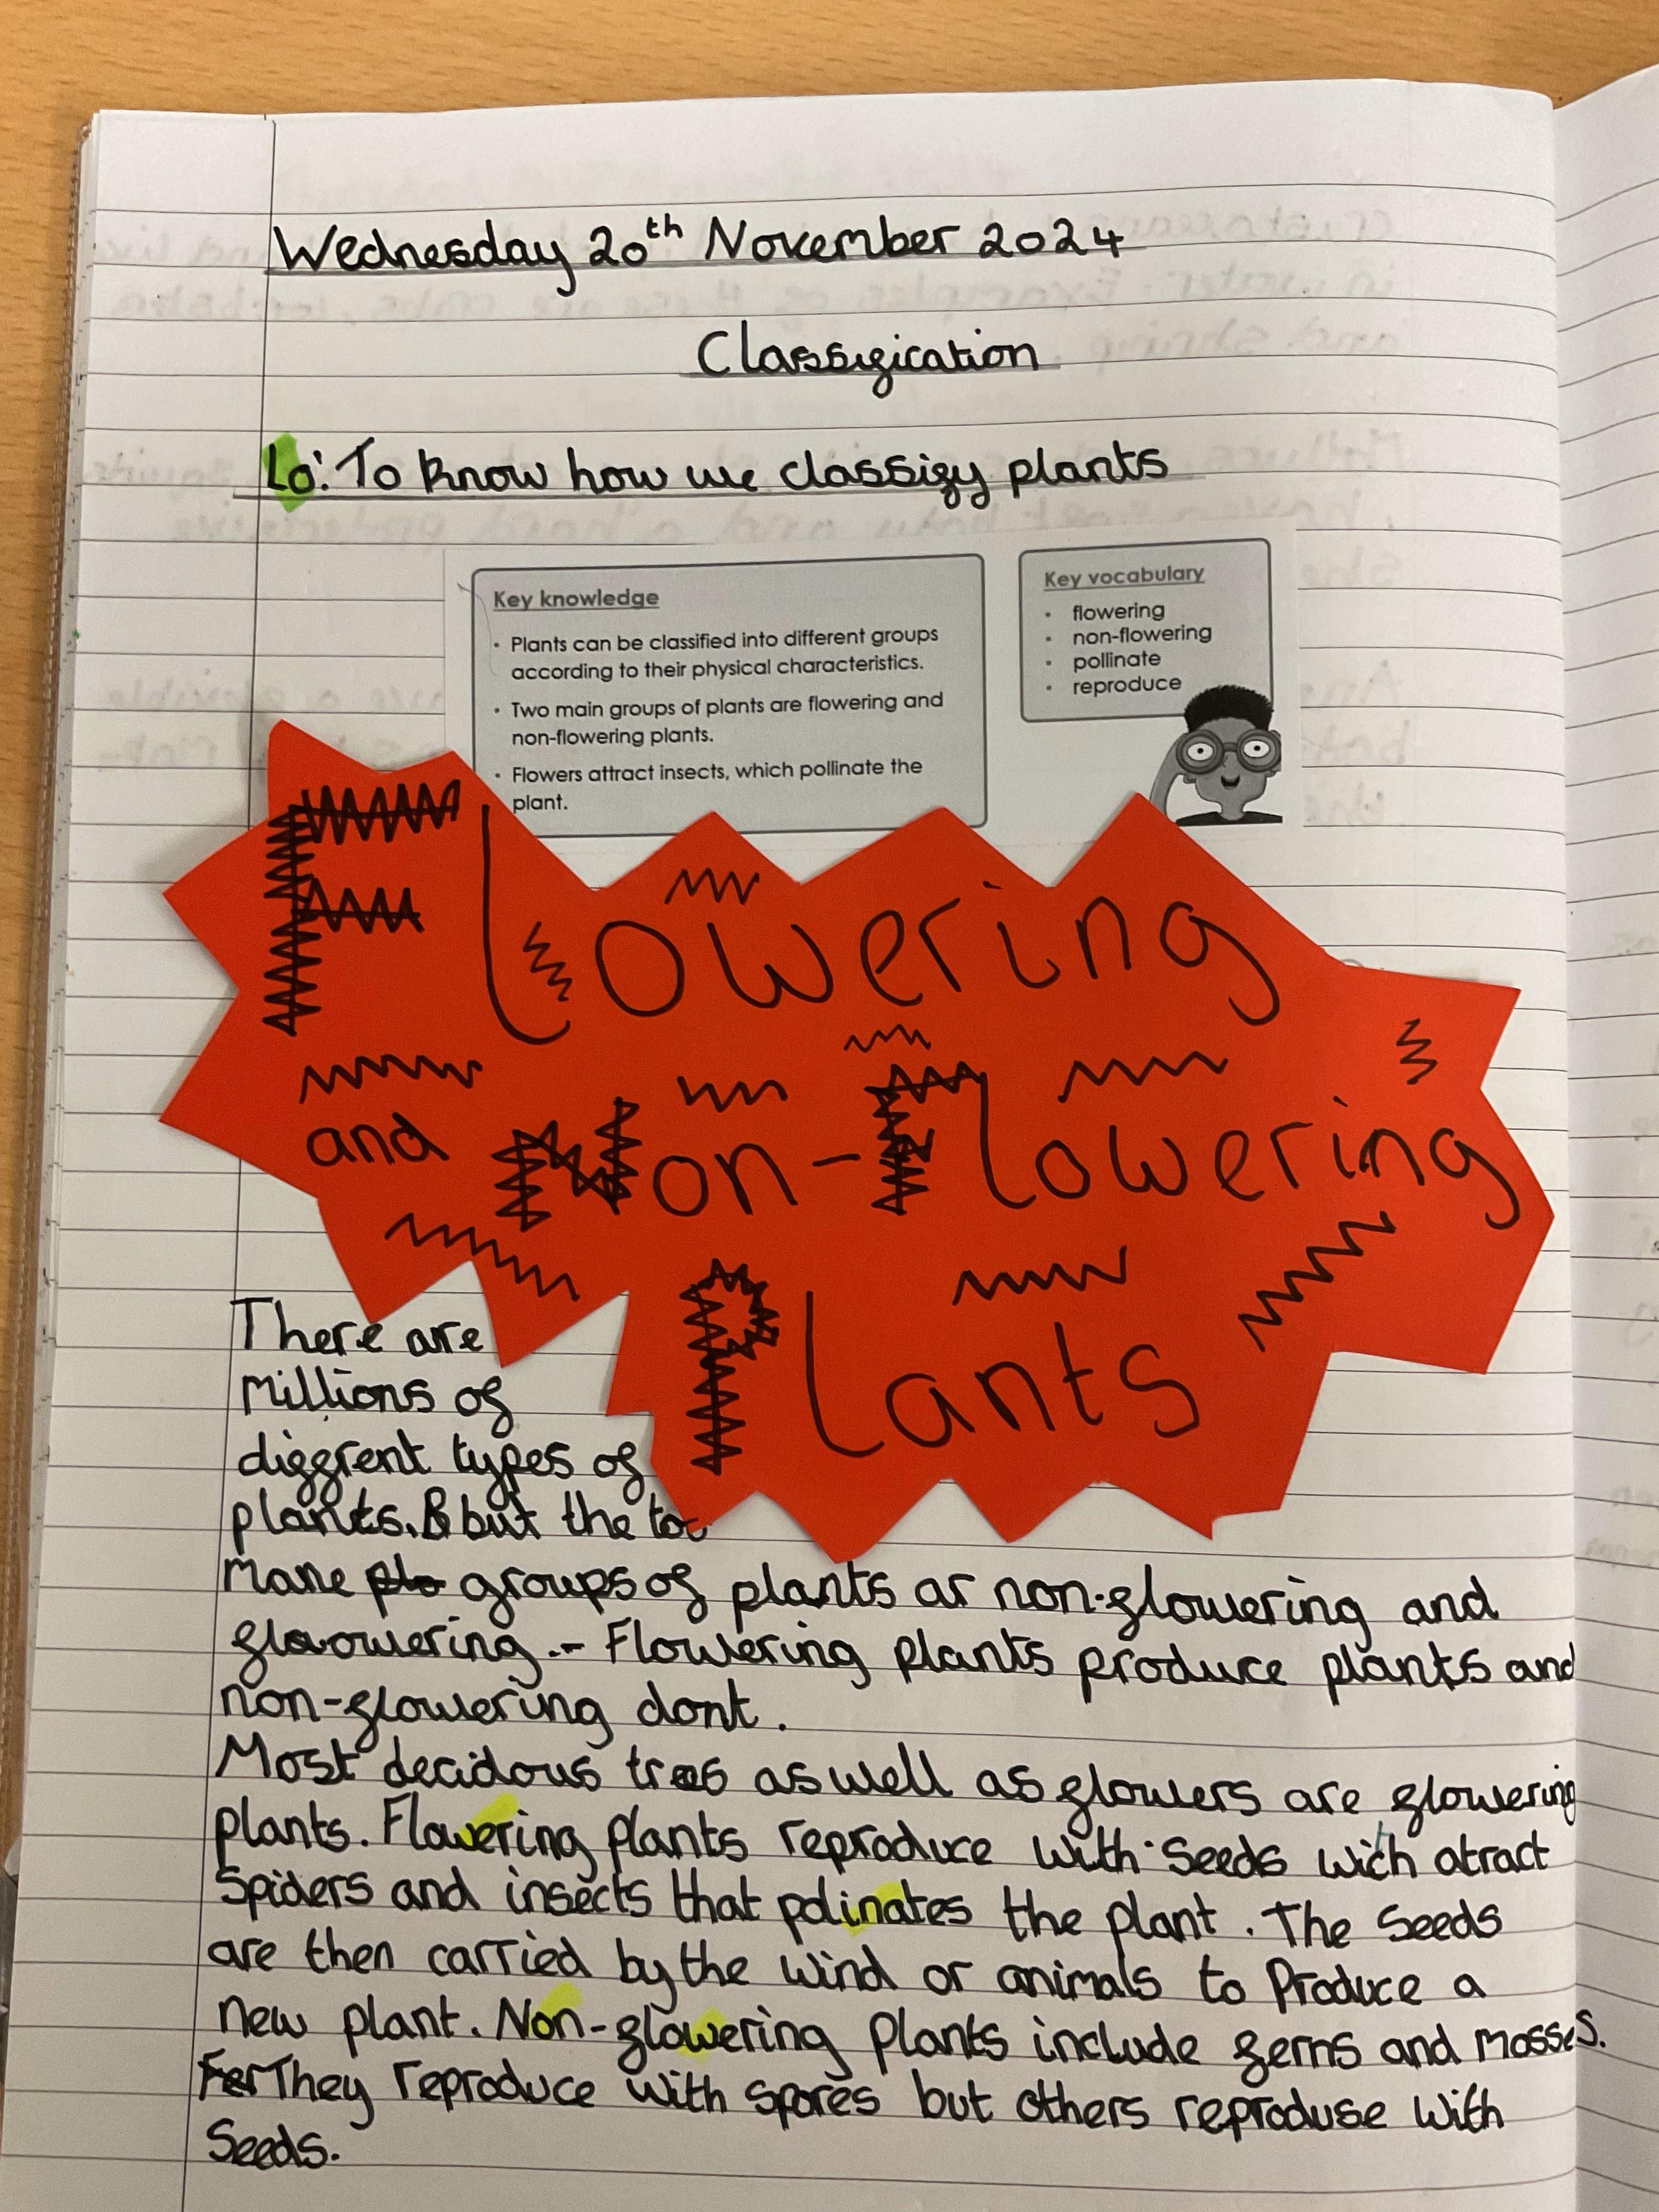 Wednesday 20th November 2024
Classification
Lo: To know how we classify plants
Key knowledge
• Plants can be classified into different groups
according to their physical characteristics.
• Two main groups of plants are flowering and
non-flowering plants.
• Flowers attract insects, which pollinate the
plant.
Key vocabulary
• flowering
• non-flowering
• pollinate
• reproduce
Flowering
and Non-Flowering
Plants
There are
millions of
diffrent types of
plants. B but the
mane plo groups of plants ar non-flowering and
flaowering.- Flowering plants produce plants and
non-flowering dont.
Most decidous trees as well as flowers are flowering
plants. Flowering plants reproduce with seeds wich atract
Spiders and insects that polinates the plant. The seeds
are then carried by the wind or animals to produce a
new plant. Non-flowering plants include ferns and mosses.
Fer They reproduce with spores but others reproduse with
Seeds.